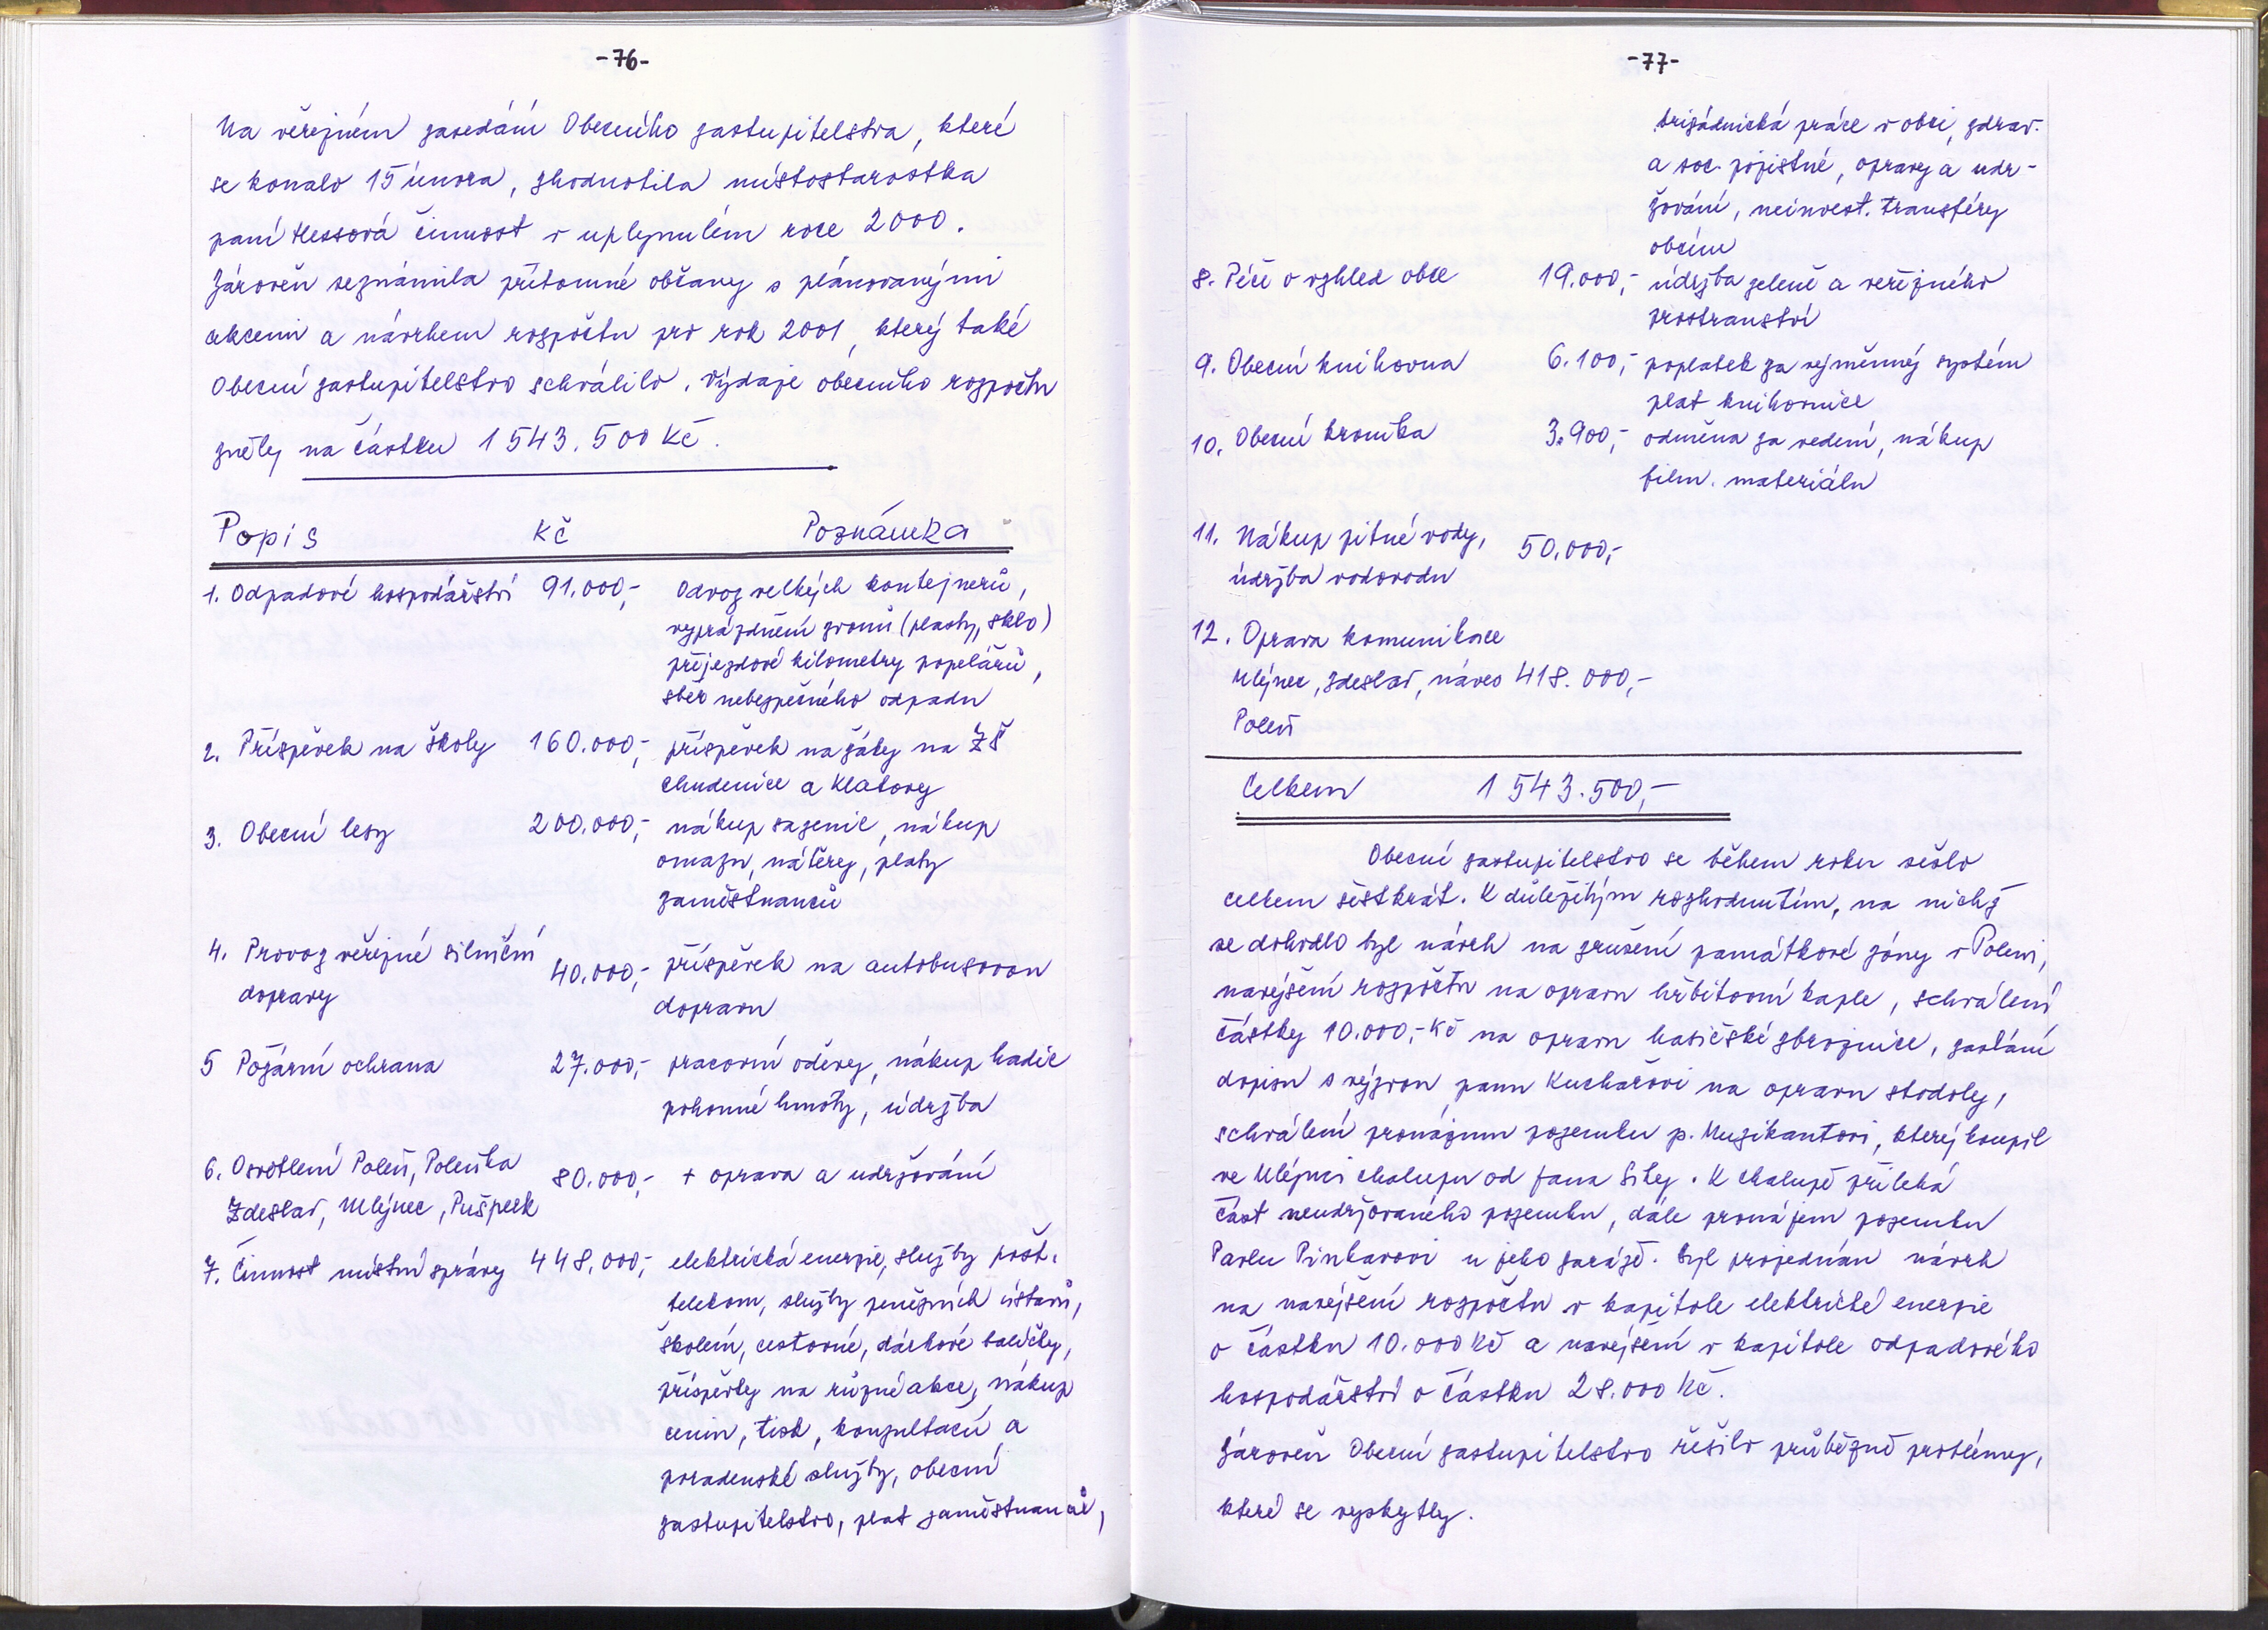 -76-
Na veřejném zasedání Obecního zastupitelstva, které
se konalo 15 února, zhodnotila místostarostka
paní Hessová činnost v uplynulém roce 2000.
Zároveň seznámila přítomné občany s plánovanými
akcemi a návrhem rozpočtu pro rok 2001, který také
Obecní zastupitelstvo schválilo. Výdaje obecního rozpočtu
zněly na částku 1 543.500 Kč.
Popis Kč Poznámka
1. Odpadové hospodářství 91.000,- Odvoz velkých kontejnerů,
vyprázdnění zvonů (plasty, sklo)
příjezdové kilometry popelářů,
sběr nebezpečného odpadu
2. Příspěvek na školy 160.000,- příspěvek na žáky na ZŠ
Chudenice a Klatovy
3. Obecní lesy 200.000,- nákup sazenic, nákup
omazu, nátěry, platy
zaměstnanců
4. Provoz veřejné silniční 40.000,- příspěvek na autobusovou
dopravy dopravu
5 Požární ochrana 27.000,- pracovní oděvy, nákup hadic
pohonné hmoty, údržba
6. Osvětlení Poleň, Poleňka 80.000,- + oprava a udržování
Zdeslav, Mlýnec, Pušperk
7. Činnost místní správy 448.000,- elektrická energie, služby pošt.
telekom, služby peněžních ústavů,
školení, cestovné, dárkové balíčky,
příspěvky na různé akce, nákup
cenin, tisk, konzultační a
poradenské služby, obecní
zastupitelstvo, plat zaměstnanců,
-77-
brigádnická práce v obci, zdrav.
a soc. pojistné, opravy a udr-
žování, neinvest. transféry
obcím
8. Péče o vzhled obce 19.000,- údržba zeleně a veřejného
prostranství
9. Obecní knihovna 6.100,- poplatek za výměnný systém
plat knihovnice
10. Obecní kronika 3.900,- odměna za vedení, nákup
film. materiálu
11. Nákup pitné vody, 50.000,-
údržba vodovodu
12. Oprava komunikace
Mlýnec, Zdeslav, náves 418.000,-
Poleň
Celkem 1 543.500,-
Obecní zastupitelstvo se během roku sešlo
celkem šestkrát. K důležitým rozhodnutím, na nichž
se dohodlo byl návrh na zrušení památkové zóny v Poleni,
navýšení rozpočtu na opravu hřbitovní kaple, schválení
částky 10.000,- Kč na opravu hasičské zbrojnice, zaslání
dopisu s výzvou panu Kuchařovi na opravu stodoly,
schválení pronájmu pozemku p. Muzikantovi, který koupil
ve Mlýnci chalupu od Jana Síky. K chalupě přiléhá
část neudržovaného pozemku, dále pronájem pozemku
Pavlu Pinkarovi u jeho garáže. Byl projednán návrh
na navýšení rozpočtu v kapitole elektrické energie
o částku 10.000 Kč a navýšení v kapitole odpadového
hospodářství o částku 28.000 Kč.
Zároveň Obecní zastupitelstvo řešilo průběžně problémy,
které se vyskytly.